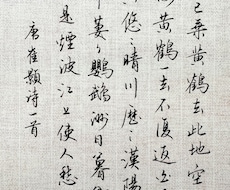 已乘黄鶴去此地空
黄鶴一去不復返
悠〻晴川歷〻漢陽
萋〻鸚鵡洲日暮
是煙波江上使人愁
唐崔顥詩一首